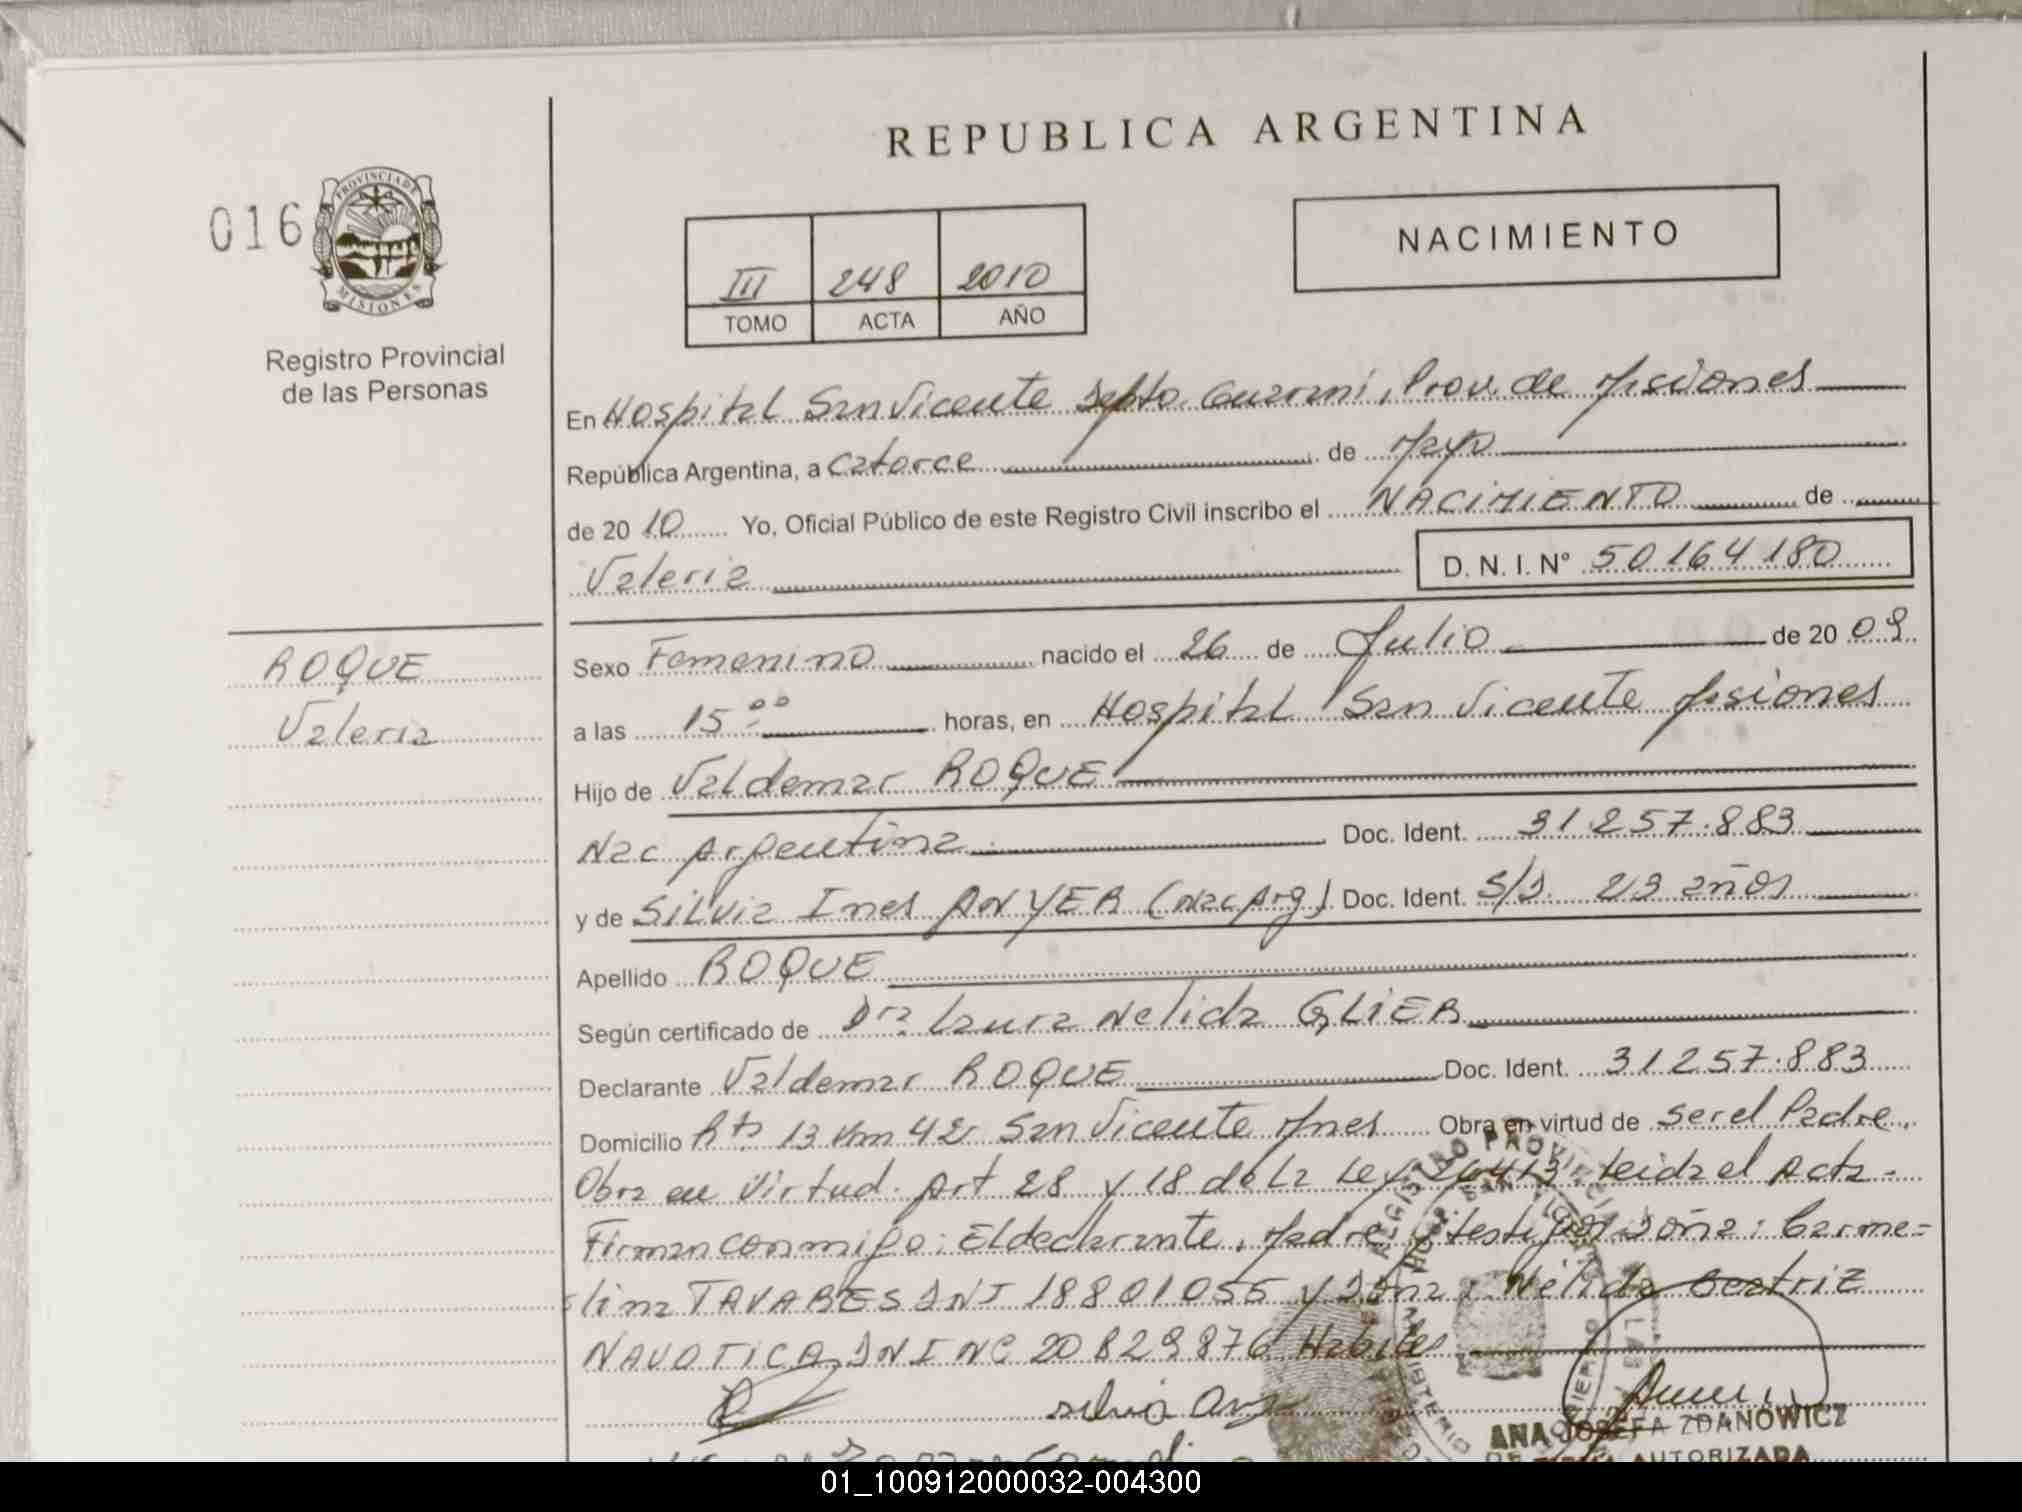 REPUBLICA ARGENTINA
016
PROVINCIA DE
MISIONES
Registro Provincial
de las Personas
NACIMIENTO
III 248 2010
TOMO ACTA AÑO
En Hospital San Vicente Depto. Guarani, Prov. de Misiones
República Argentina, a Catorce de Mayo
de 2010 Yo, Oficial Público de este Registro Civil inscribo el NACIMIENTO de
Valeria D. N. I. N° 50164180
ROQUE
Valeria
Sexo Femenino nacido el 26 de Julio de 2009
a las 15:00 horas, en Hospital San Vicente Misiones
Hijo de Valdemar ROQUE
Nac Argentina Doc. Ident. 31.257.883
y de Silvia Ines ANYER (Nac Arg) Doc. Ident. S/D. 23 años
Apellido ROQUE
Según certificado de Dra. Laura Nelida GLIER
Declarante Valdemar ROQUE Doc. Ident. 31257.883
Domicilio Rta 13 Km 42 San Vicente Mnes Obra en virtud de ser el Padre.
Obra en Virtud. Art 28 y 18 de la Ley 26413 Leida el Acta-
Firman conmigo: El declarante, Madre y testigos Doña: Carme=
lina TAVARES DNI 18801055 y Doña: Nélida Beatriz
NAVOTICA DNI NC 20829876 Habiles
silvia
ANA JOSEFA ZDANOWICZ
AUTORIZADA
01_100912000032-004300